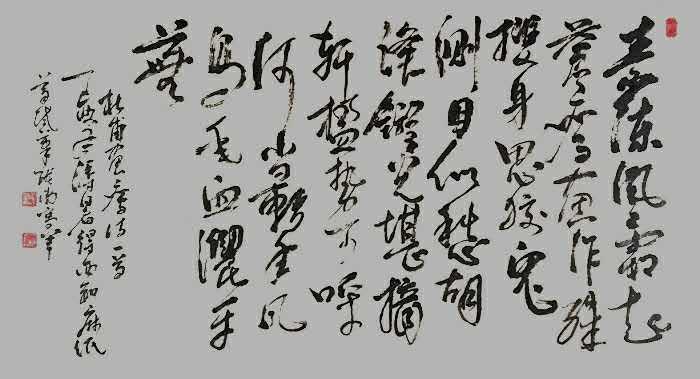 素練風霜起
蒼鷹畫作殊
㧐身思狡兔
側目似愁胡
絛鏇光堪摘
軒楹勢可呼
何當擊凡
鳥毛血灑平
蕪
杜甫畫鷹詩一首